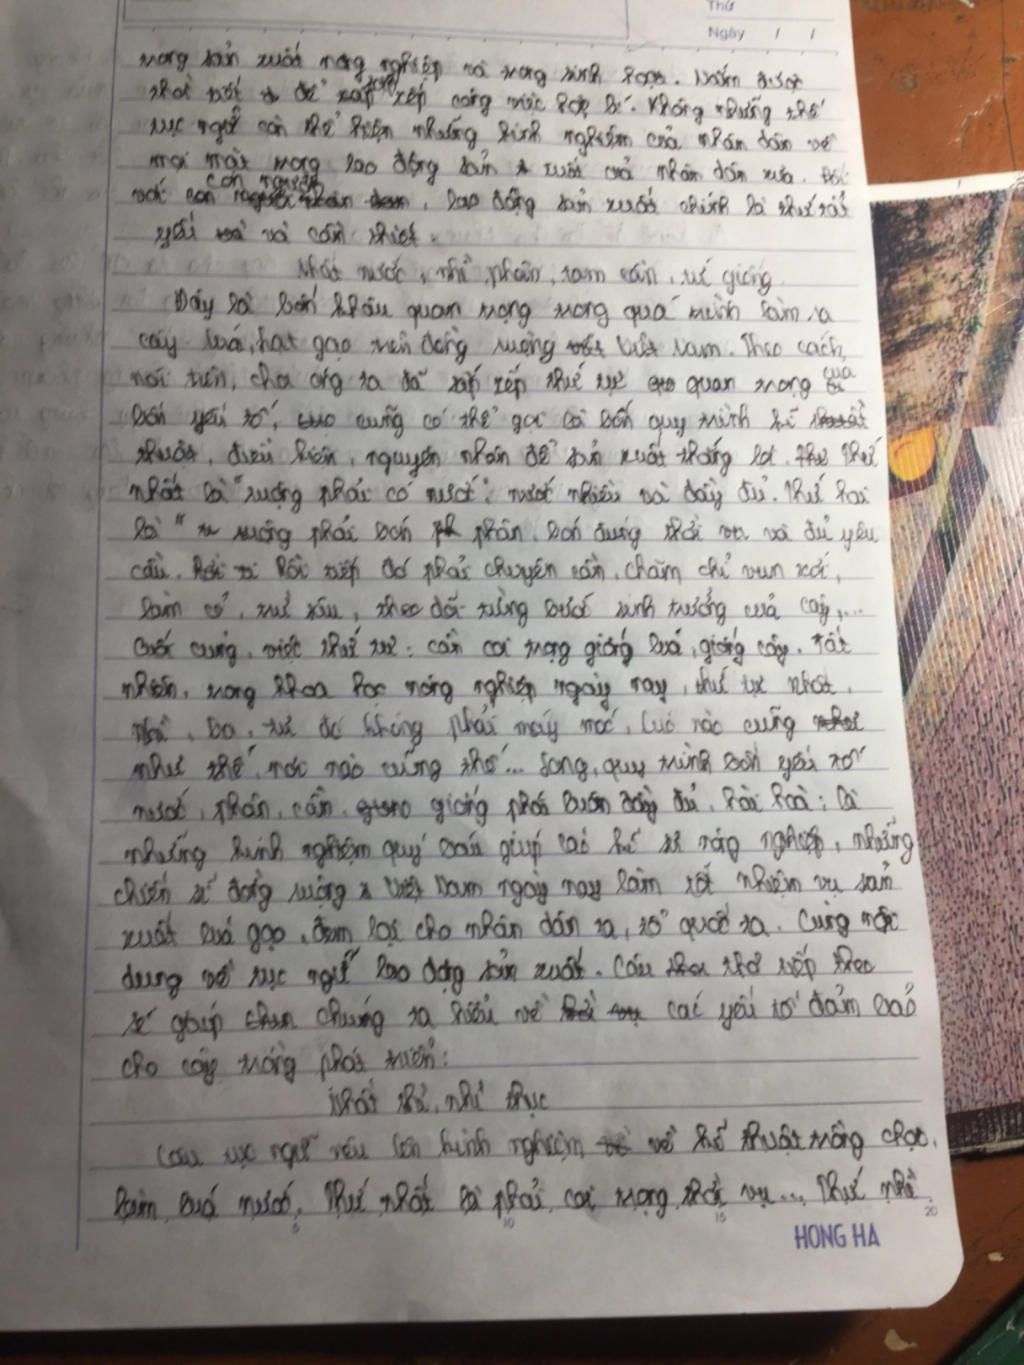 Thứ
Ngày / /
trong sản xuất nông nghiệp và trong sinh hoạt. Nắm được
thời tiết để sắp xếp công việc hợp lí. Không những thế
tục ngữ còn thể hiện những kinh nghiệm của nhân dân về
mọi mặt trong lao động sản xuất của nhân dân xưa. Đối
với con người, lao động sản xuất chính là thứ tất
yếu và cần thiết.
Nhất nước, nhì phân, tam cần, tứ giống
Đây là bốn khâu quan trọng trong quá trình làm ra
cây lúa, hạt gạo trên đồng ruộng Việt Nam. Theo cách
nói trên, cha ông ta đã sắp xếp thứ tự quan trọng của
bốn yếu tố, cũng có thể gọi là bốn quy trình kĩ
thuật, điều kiện, nguyên nhân để sản xuất thắng lợi. Thứ
nhất là "ruộng phải có nước", nước nhiều và đầy đủ. Thứ hai
là " ruộng phải bón phân, bón đúng thời vụ và đủ yêu
cầu. Rồi tiếp đó phải chuyên cần, chăm chỉ vun xới,
làm cỏ, trừ sâu, theo dõi từng bước sinh trưởng của cây,...
Cuối cùng, việc thứ tư: cần coi trọng giống lúa, giống cây. Tất
nhiên, trong khoa học nông nghiệp ngày nay, thứ tự nhất,
nhì, ba, tư đó không phải máy móc, lúc nào cũng
như thế, nơi nào cũng thế... Song, quy trình bốn yếu tố
nước, phân, cần, giống phải luôn đầy đủ, hài hoà; là
những kinh nghiệm quý báu giúp các kĩ sư nông nghiệp, những
chiến sĩ đồng ruộng Việt Nam ngày nay làm tốt nhiệm vụ sản
xuất lúa gạo, đem lại cho nhân dân ta, tổ quốc ta. Cùng nội
dung về tục ngữ lao động sản xuất. Câu thơ tiếp theo
sẽ giúp chúng ta hiểu về các yếu tố đảm bảo
cho cây trồng phát triển:
Nhất thì, nhì thục
Câu tục ngữ nêu lên kinh nghiệm về kĩ thuật trồng chọt,
làm lúa nước. Thứ nhất là phải coi trọng thời vụ... Thứ nhì
5 10 15 20
HONG HA